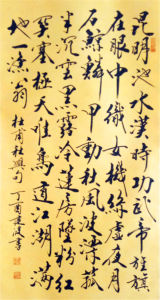 昆明池水漢時功武帝旌旗
在眼中織女機絲虛夜月
石鯨鱗甲動秋風波漂菰
米沉雲黑露冷蓮房墜粉紅
關塞極天唯鳥道江湖滿
地一漁翁
杜甫秋興句 丁酉 書